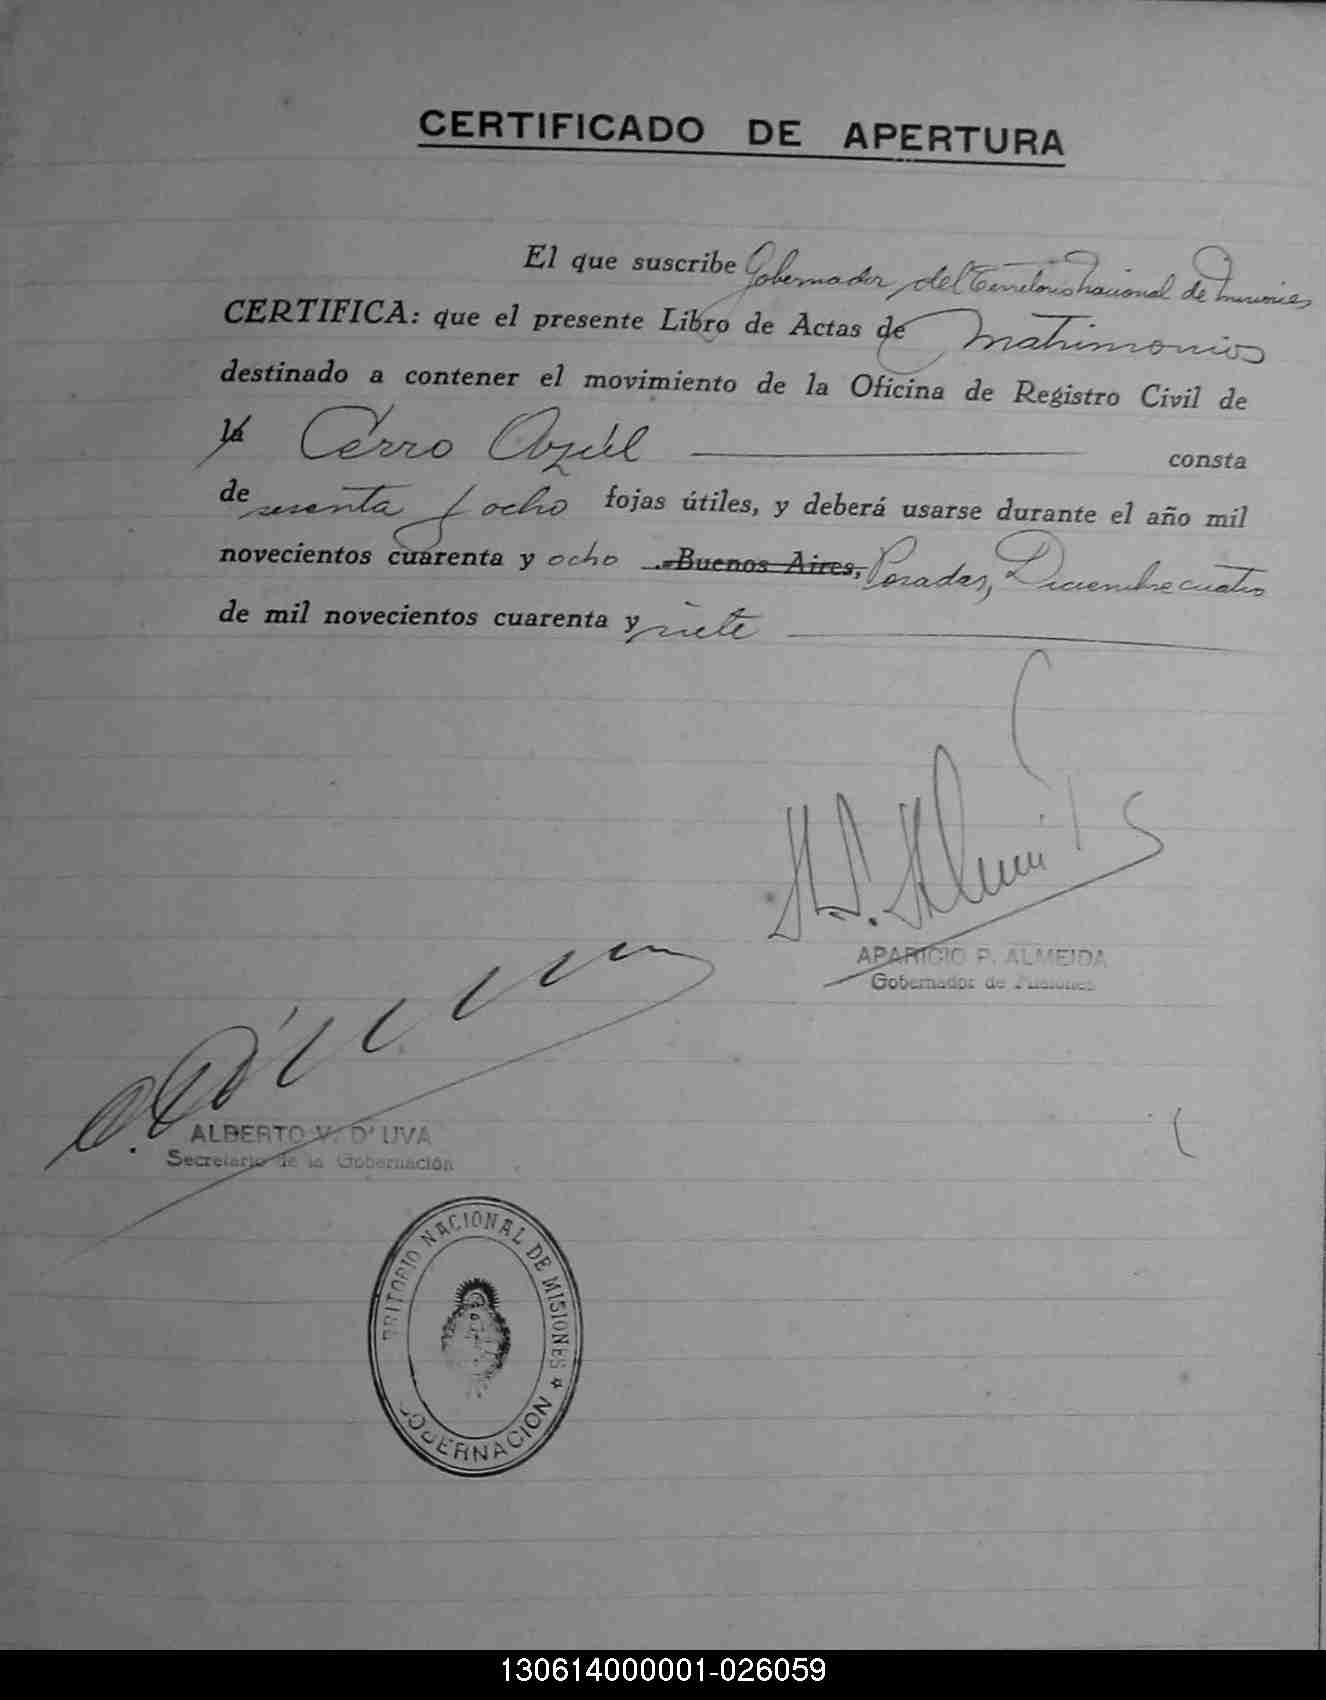 CERTIFICADO DE APERTURA
El que suscribe Gobernador del Territorio Nacional de Misiones
CERTIFICA: que el presente Libro de Actas de Matrimonios
destinado a contener el movimiento de la Oficina de Registro Civil de
la Cerro Azúl consta
de sesenta y ocho fojas útiles, y deberá usarse durante el año mil
novecientos cuarenta y ocho Buenos Aires, Posadas, Diciembre cuatro
de mil novecientos cuarenta y siete
APARICIO P. ALMEIDA
Gobernador de Misiones
ALBERTO V. D' UVA
Secretario de la Gobernación
RRITORIO NACIONAL DE MISIONES
GOBERNACION
130614000001-026059